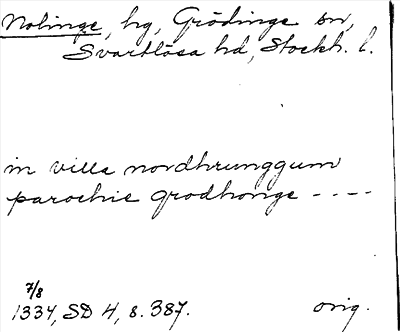 Nolinge, hg, Grödinge sn,
Svartlösa hd, Stockh. l.
in villa nordhrunggum
parochie grodhonge ----
7/8
1334, SD 4, s. 387. orig.